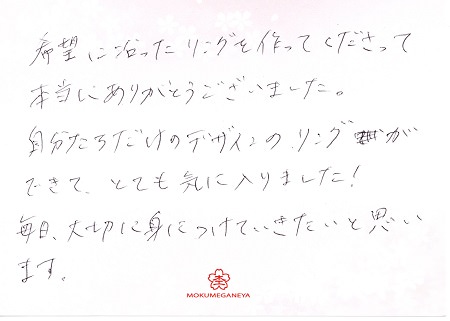 希望に沿ったリングを作ってくださって
本当にありがとうございました。
自分たちだけのデザインの、リングが
できて、とても気に入りました!
毎日、大切に身につけていきたいと思い
ます。
MOKUMEGANEYA